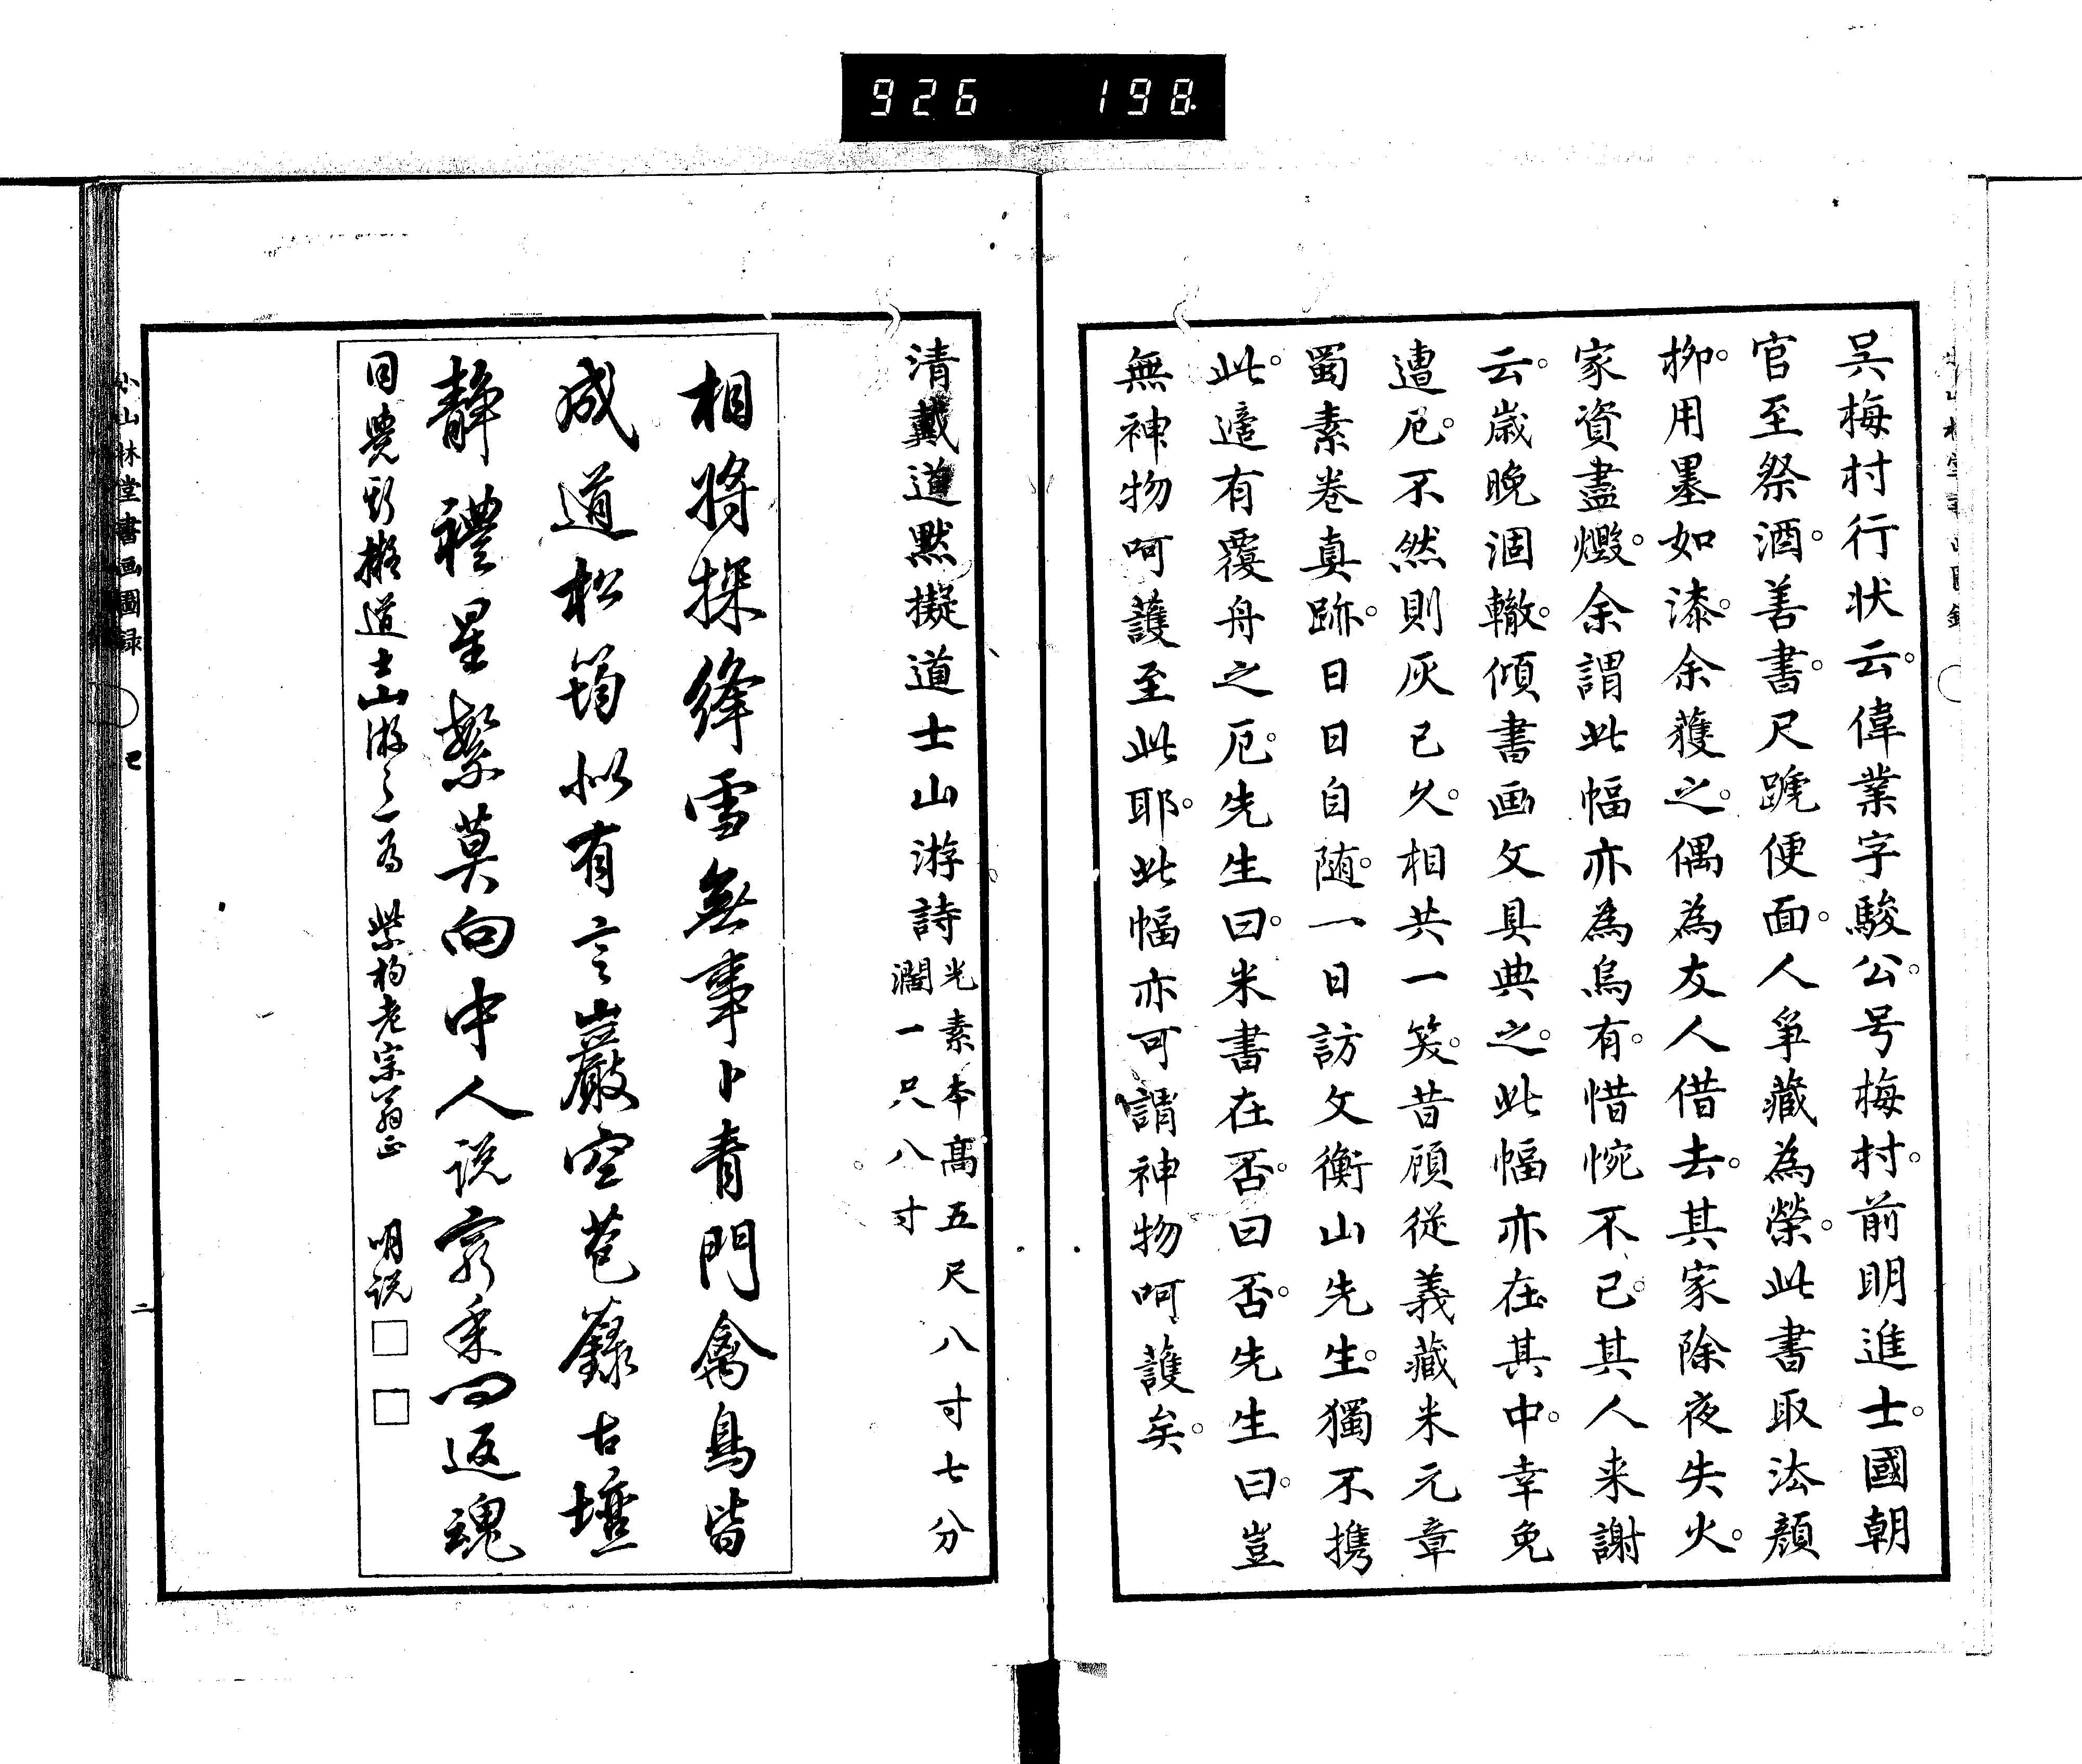 926 198.
吳梅村行状云。偉業字駿公。号梅村。前明進士。國朝
官至祭酒。善書。尺蹏便面。人争藏為榮。此書取法顔
柳。用墨如漆。余獲之。偶為友人借去。其家除夜失火。
家資盡燬。余謂此幅亦為烏有。惜惋不已。其人来謝
云。歳晩涸轍。傾書画文具典之。此幅亦在其中。幸免
遭厄。不然則灰已久。相共一笑。昔顧従義藏米元章
蜀素巻真跡。日日自随。一日訪文衡山先生。獨不携
此。遊有覆舟之厄。先生曰。米書在否。曰否。先生曰。豈
無神物呵護至此耶。此幅亦可謂神物呵護矣。
清戴道黙擬道士山游詩
光素本高五尺八寸七分
濶一尺八寸
相將探絳雪無事卜青門禽鳥皆
成道松筠似有言巖空苞籙古壇
静禮星繁莫向中人説
返魂
道士山游之一為
老宗翁正
明説
小山林堂書画圖録
二